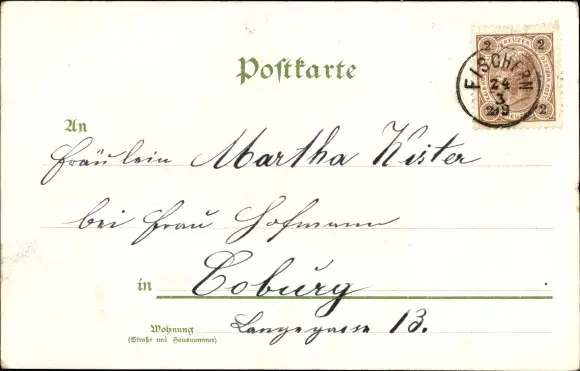 Postkarte
2 KREUZER 2
2 2
FISCHERN
24
3
An
Fräulein Martha Kister
bei Frau Hofmann
in Coburg
Wohnung Langegasse 13.
(Straße und Hausnummer)